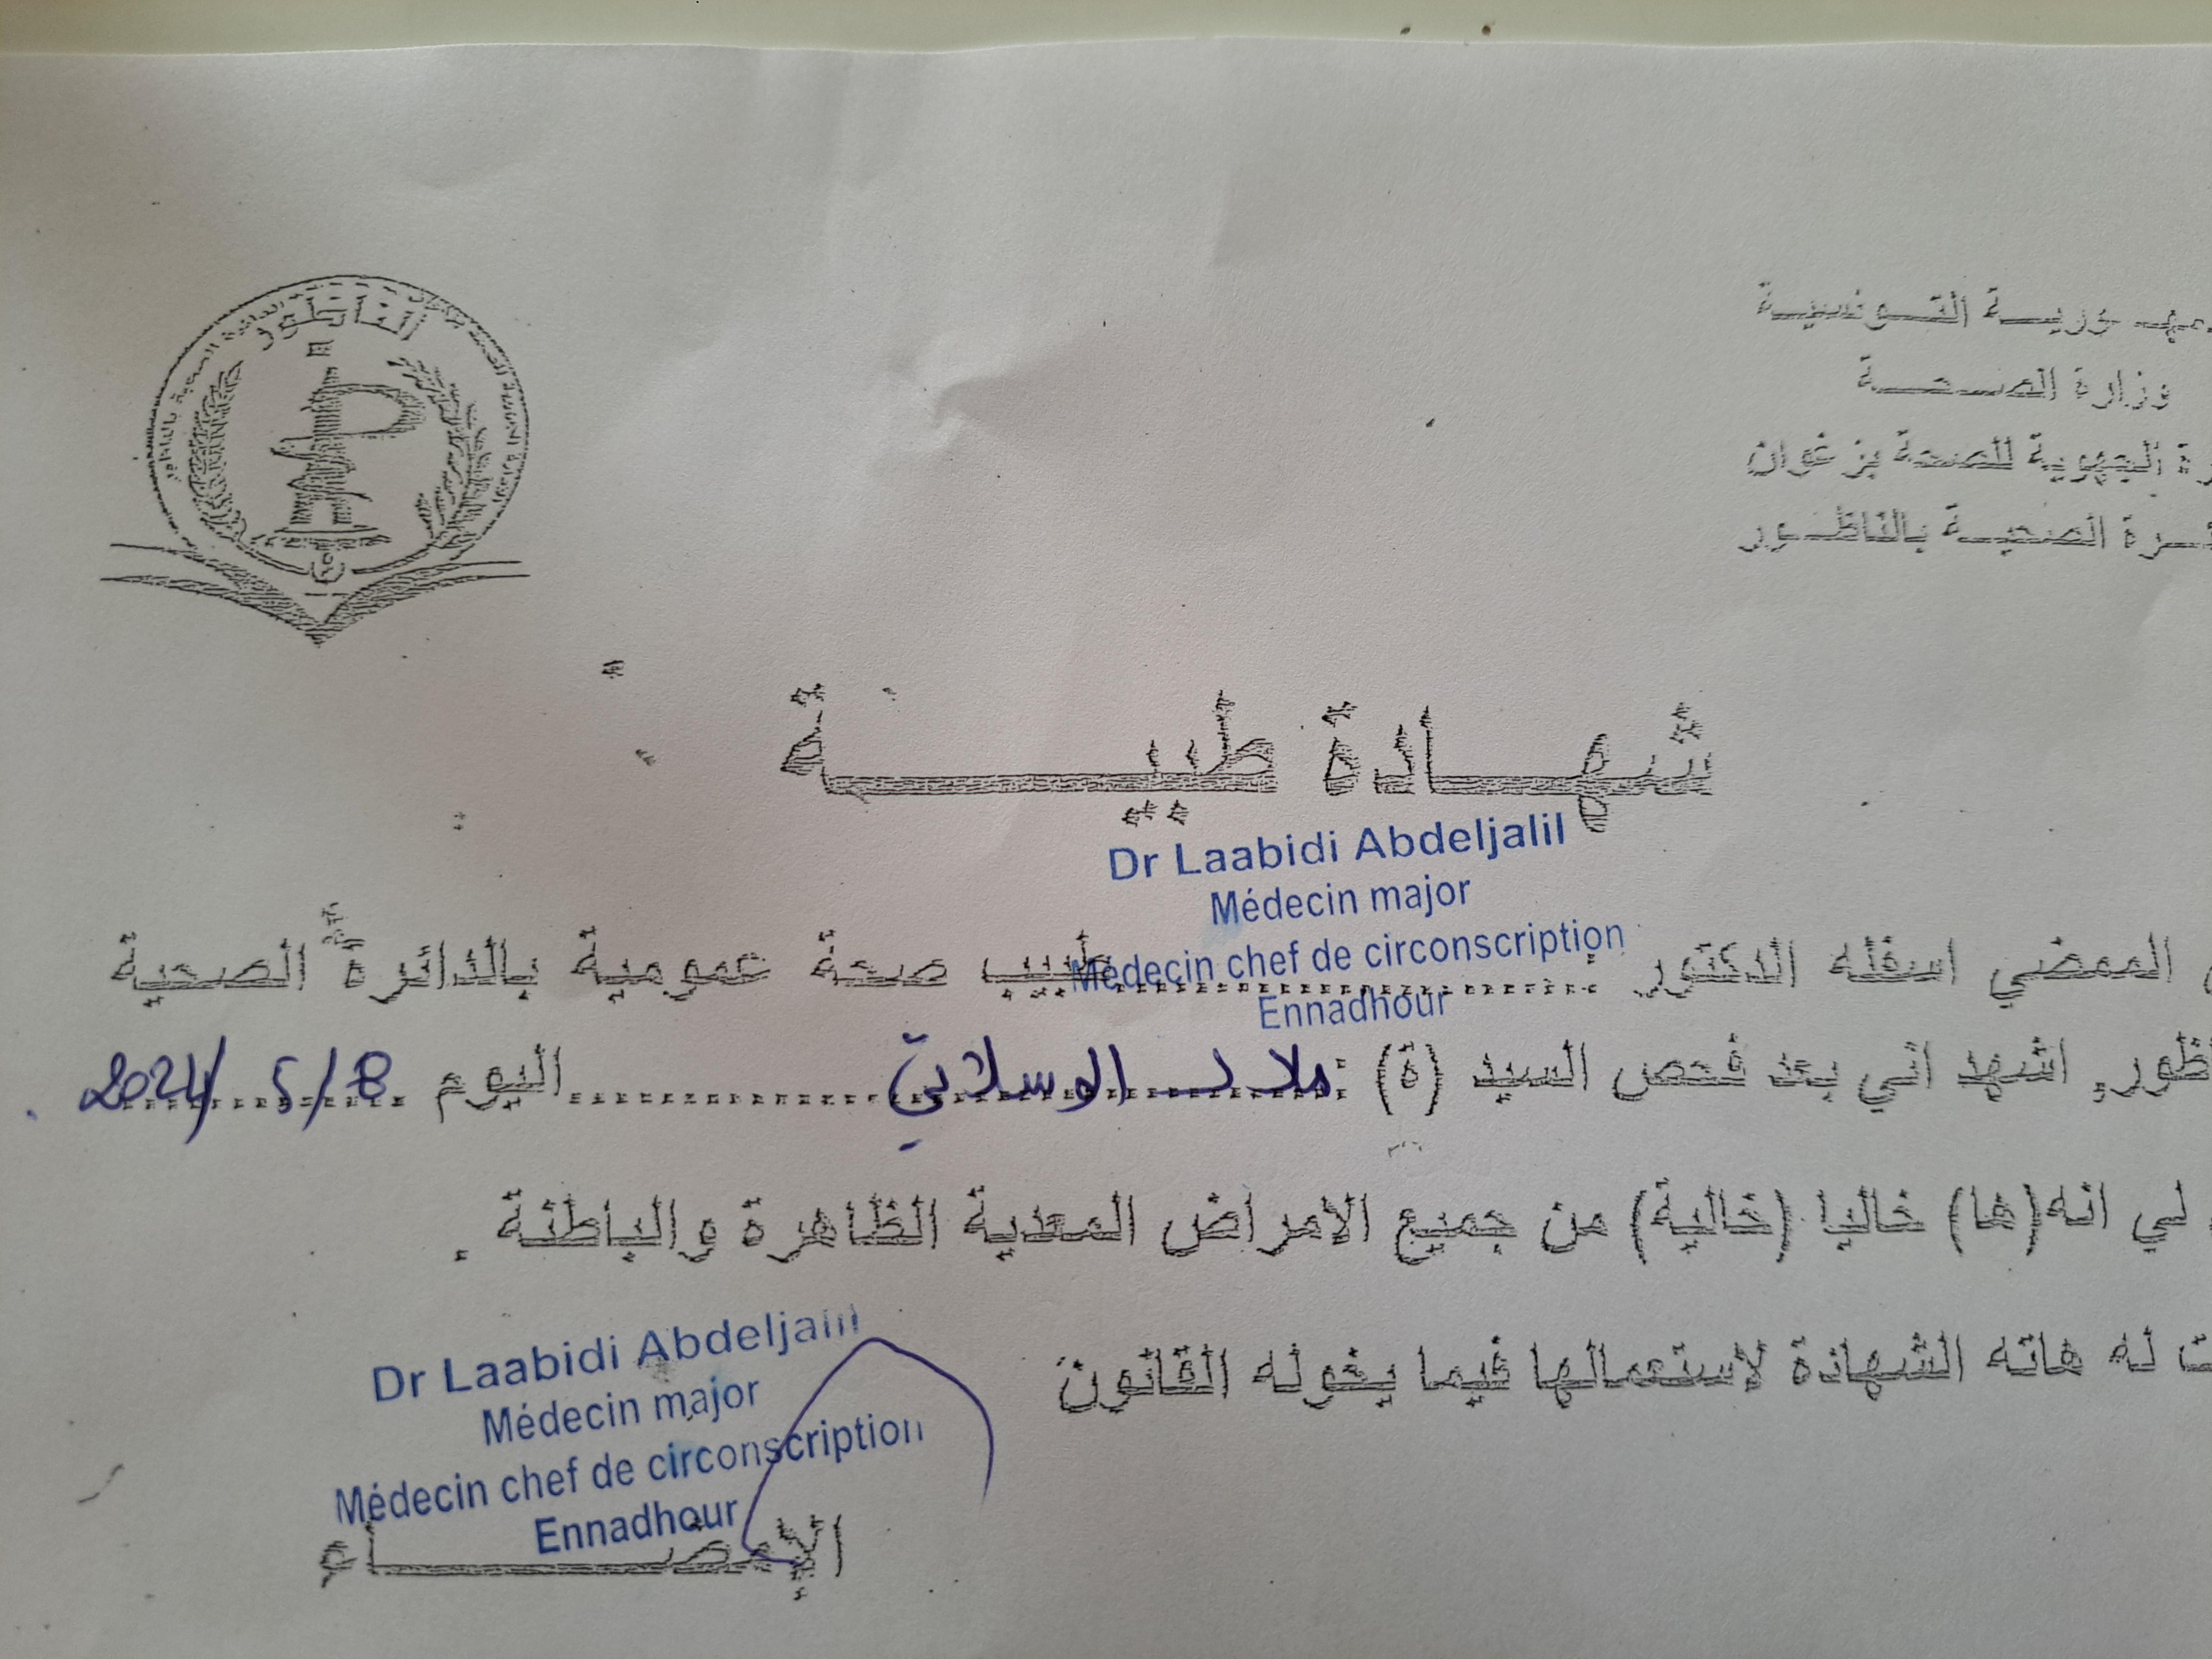 الناظور
مهـوريــة التــونسيــة
وزارة الصــحــة
رة الجهوية للصحة بزغوان
ئــرة الصحيــة بالناظــور
شهـــادة طبيــــــة
Dr Laabidi Abdeljalil
Médecin major
Médecin chef de circonscription
Ennadhour
الممضي اسفله الدكتور :..............طبيب صحة عمومية بالدائرة الصحية
اظور, اشهد اني بعد فحص السيد (ة) :........الوسلاتي........اليوم 2024/5/8
لي انه(ها) خاليا (خالية) من جميع الامراض المعدية الظاهرة والباطنة .
ت له هاته الشهادة لاستعمالها فيما يخوله القانون
Dr Laabidi Abdeljalil
Médecin major
Médecin chef de circonscription
Ennadhour
الإمضــــاء